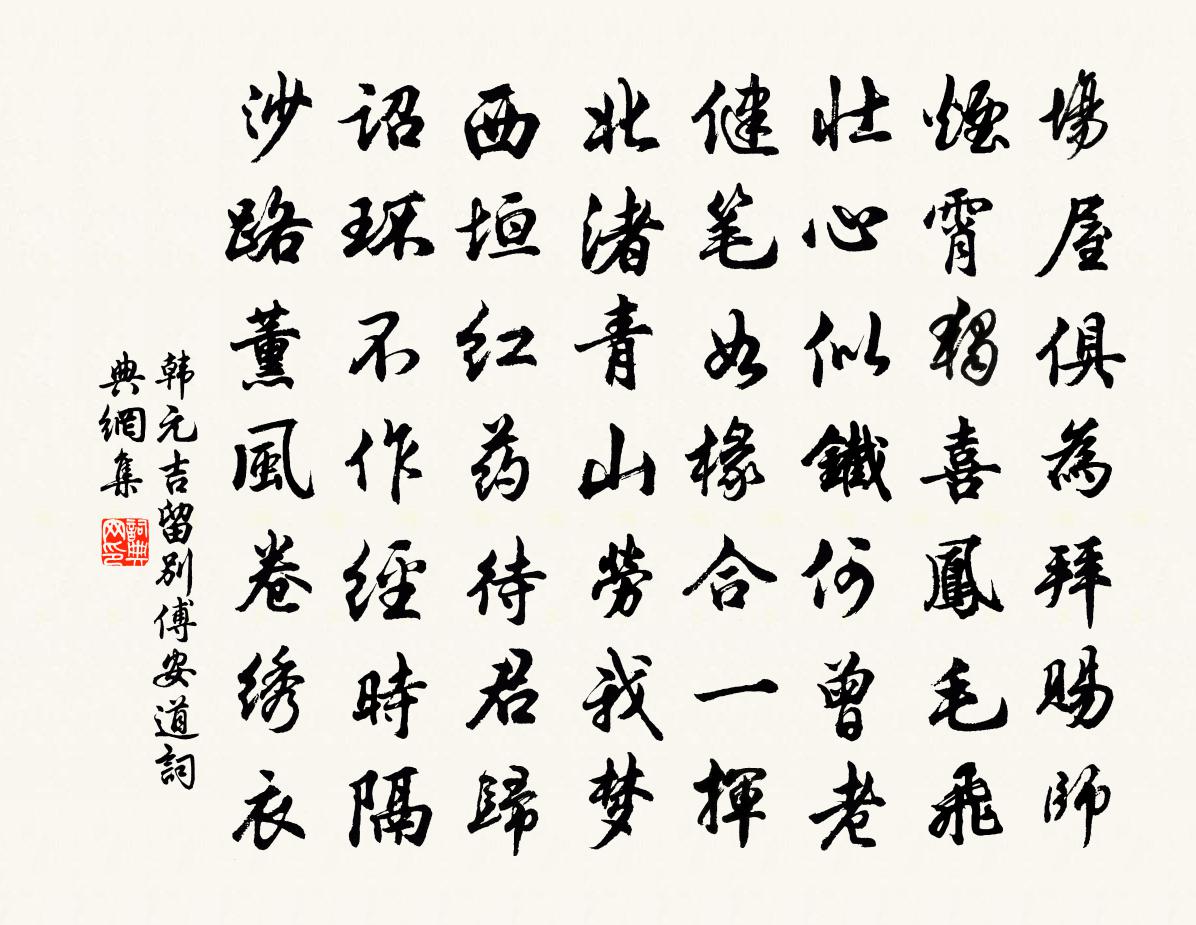 場屋俱為拜賜師
煙霄獨喜鳳毛飛
壯心似鐵何曾老
健笔如椽合一揮
北渚青山勞我梦
西垣红药待君歸
詔环不作經時隔
沙路薰風卷绣衣
韩元吉留别傅安道詞
典網集
詞典
网印